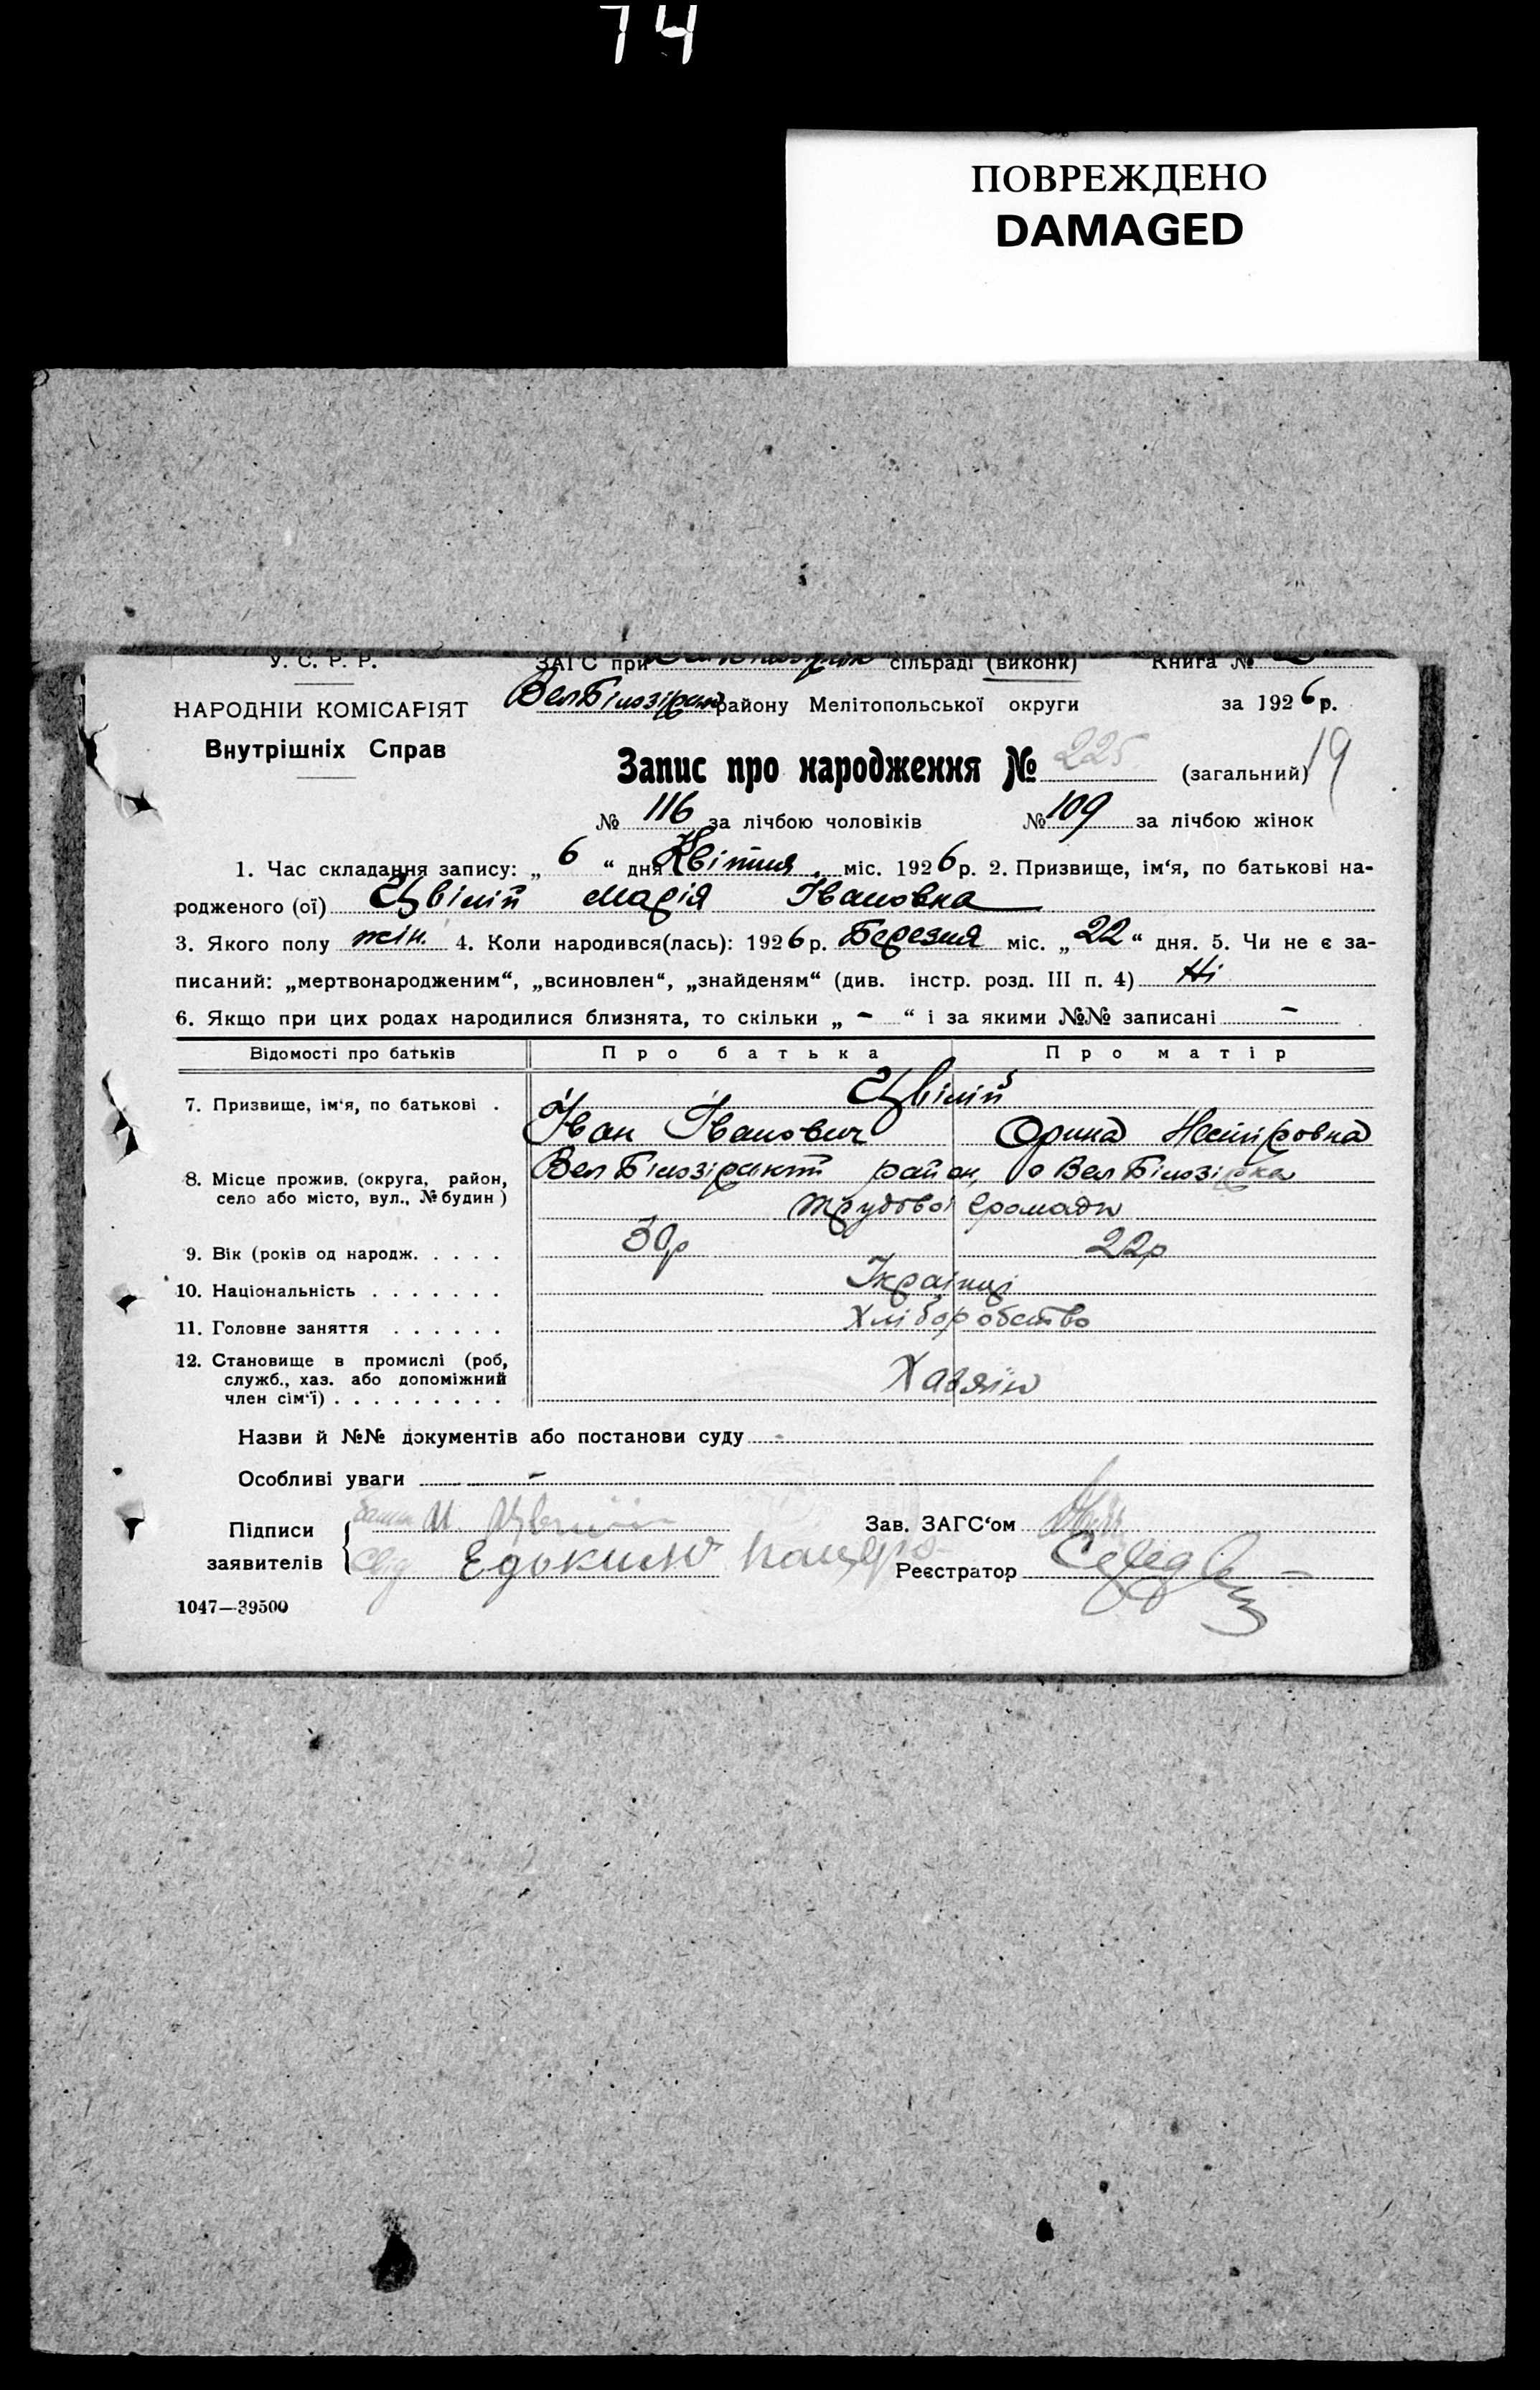 74
ПОВРЕЖДЕНО
DAMAGED
У. С. Р. Р. ЗАГС при сільраді (виконк) Книга №
НАРОДНІЙ КОМІСАРІЯТ ВелБілозірськ району Мелітопольської округи за 1926 р.
Внутрішніх Справ
Запис про народження № 225 (загальний) 19
№ 116 за лічбою чоловіків № 109 за лічбою жінок
1. Час складання запису: „ 6 “ дня Квітня міс. 1926 р. 2. Призвище, ім‘я, по батькові на-
родженого (ої) Цвілій Марія Івановна
3. Якого полу жін. 4. Коли народився(лась): 1926 р. Березня міс. „ 22 “ дня. 5. Чи не є за-
писаний: „мертвонародженим“, „всиновлен“, „знайденям“ (див. інстр. розд. III п. 4) Ні
6. Якщо при цих родах народилися близнята, то скільки „ - “ і за якими №№ записані -
Відомості про батьків Про батька Про матір
7. Призвище, ім‘я, по батькові . Цвілій
Іван Іванович Орина Нестіровна
8. Місце прожив. (округа, район, Вел Білозірський район, Вел Білозірка
село або місто, вул., № будин) трудової громади
9. Вік (років од народж. . . . . 30р 22р
10. Національність . . . . . . . Українці
11. Головне заняття . . . . . . Хліборобство
12. Становище в промислі (роб, служб., хаз. або допоміжний член сім‘ї) . . . . . . . . . Хазяїн
Назви й №№ документів або постанови суду -
Особливі уваги -
Підписи заявителів И. Цвелий
Зав. ЗАГС‘ом
Реєстратор
1047—39500